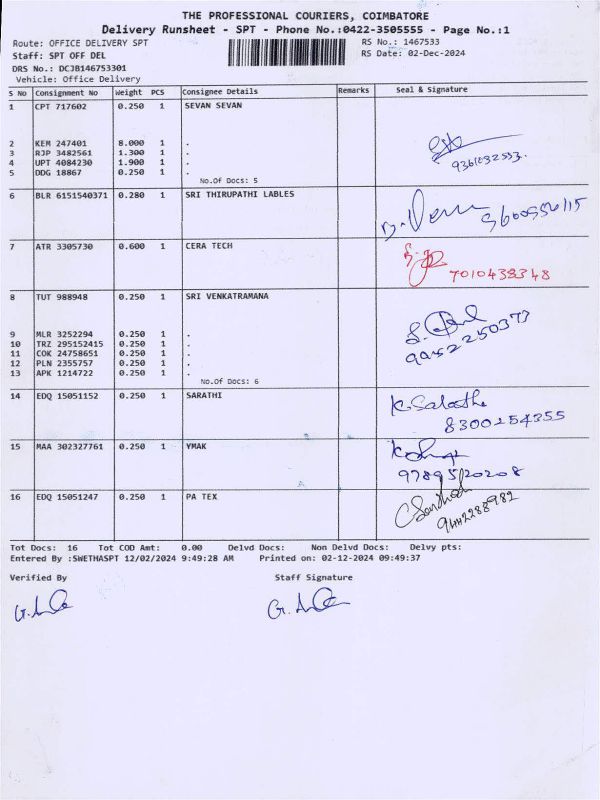 THE PROFESSIONAL COURIERS, COIMBATORE
Delivery Runsheet - SPT - Phone No.:0422-3505555 - Page No.:1
Route: OFFICE DELIVERY SPT RS No.: 1467533
Staff: SPT OFF DEL RS Date: 02-Dec-2024
DRS No.: DCJB146753301
Vehicle: Office Delivery
S No Consignment No Weight PCS Consignee Details Remarks Seal & Signature
1 CPT 717602 0.250 1 SEVAN SEVAN
2 KEM 247401 8.000 1 .
3 RJP 3482561 1.300 1 .
4 UPT 4084230 1.900 1 .
5 DDG 18867 0.250 1 .
No.Of Docs: 5
6 BLR 6151540371 0.280 1 SRI THIRUPATHI LABLES
7 ATR 3305730 0.600 1 CERA TECH
7010438348
8 TUT 988948 0.250 1 SRI VENKATRAMANA
9952250373
9 MLR 3252294 0.250 1 .
10 TRZ 295152415 0.250 1 .
11 COK 24758651 0.250 1 .
12 PLN 2355757 0.250 1 .
13 APK 1214722 0.250 1 .
No.Of Docs: 6
14 EDQ 15051152 0.250 1 SARATHI
8300254355
15 MAA 302327761 0.250 1 YMAK
9789520208
16 EDQ 15051247 0.250 1 PA TEX
Tot Docs: 16 Tot COD Amt: 0.00 Delvd Docs: Non Delvd Docs: Delvy pts:
Entered By :SWETHASPT 12/02/2024 9:49:28 AM Printed on: 02-12-2024 09:49:37
Verified By Staff Signature